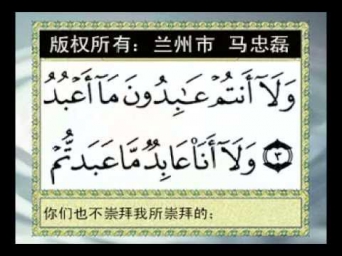 版权所有：兰州市 马忠磊
وَلَآ أَنتُمْ عَـٰبِدُونَ مَآ أَعْبُدُ
﴿٣﴾ وَلَآ أَنَا۠ عَابِدٌ مَّا عَبَدتُّمْ
你们也不崇拜我所崇拜的；